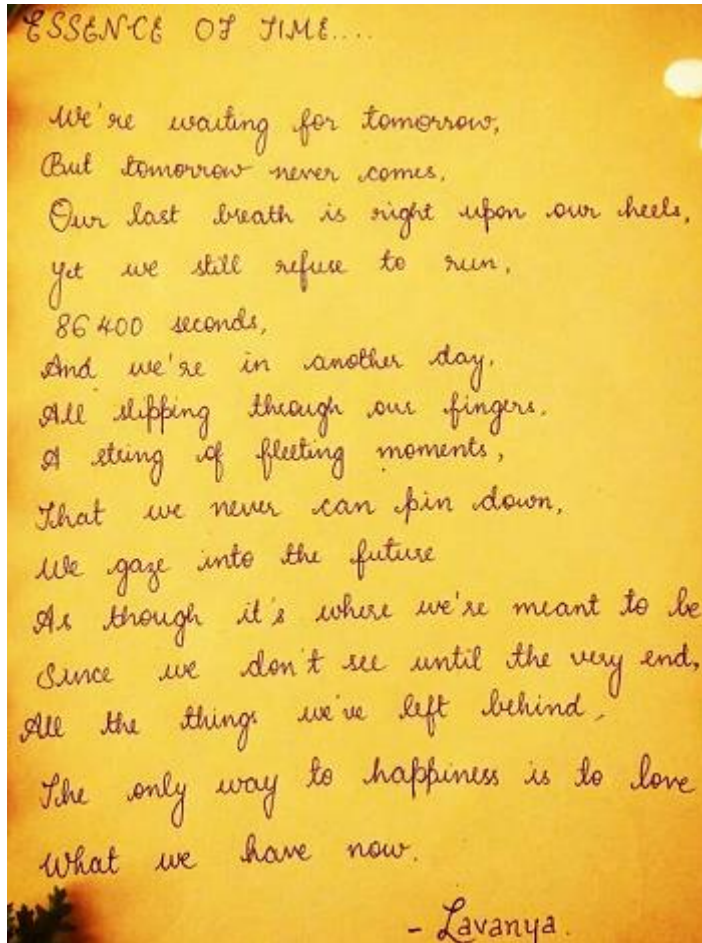 ESSENCE OF TIME....
We're waiting for tomorrow,
But tomorrow never comes,
Our last breath is right upon our heels,
Yet we still refuse to run,
86400 seconds,
And we're in another day,
All slipping through our fingers,
A string of fleeting moments,
That we never can pin down,
We gaze into the future
As though it's where we're meant to be
Since we don't see until the very end,
All the things we've left behind,
The only way to happiness is to love
What we have now.
- Lavanya.